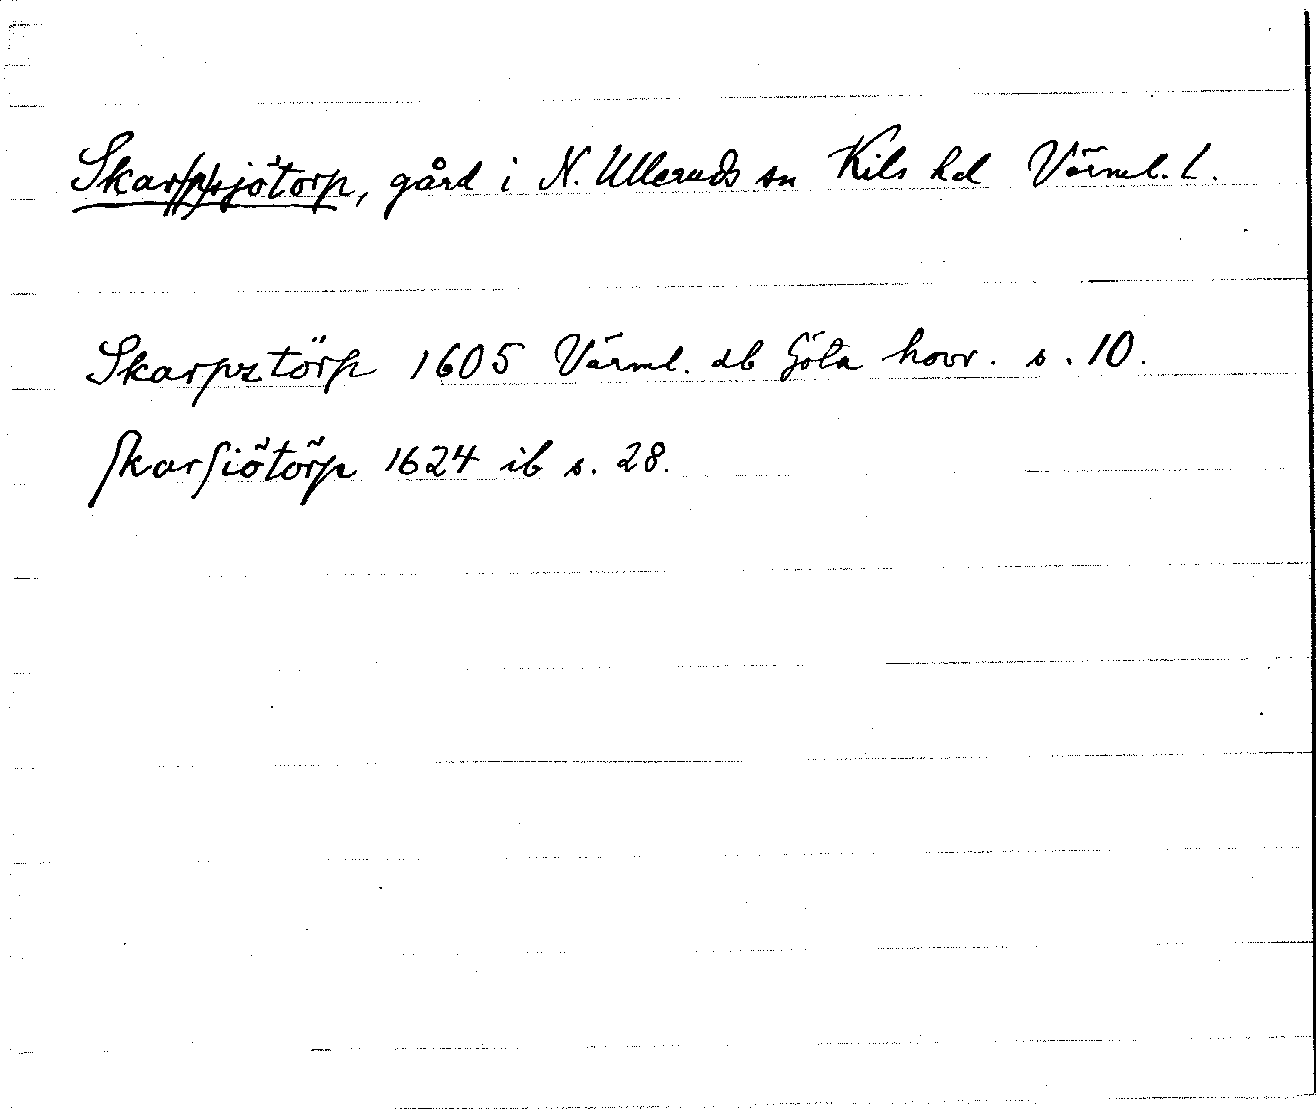 Skar/p/sjötorp, gård i N. Ulleruds sn Kils hd Värml. L.
Skarpztörp 1605 Värml. db Göta hovr. s. 10.
ſkarſiötörp 1624 ib s. 28.